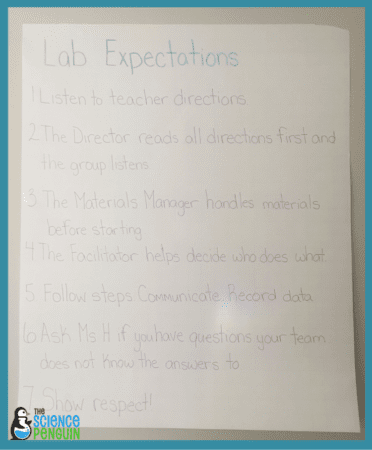 Lab Expectations
1. Listen to teacher directions
2. The Director reads all directions first and
the group listens
3. The Materials Manager handles materials
before starting
4. The Facilitator helps decide who does what
5. Follow steps Communicate Record data
6. Ask Ms H if you have questions your team
does not know the answers to
7. Show respect!
THE
SCIENCE
PENGUIN